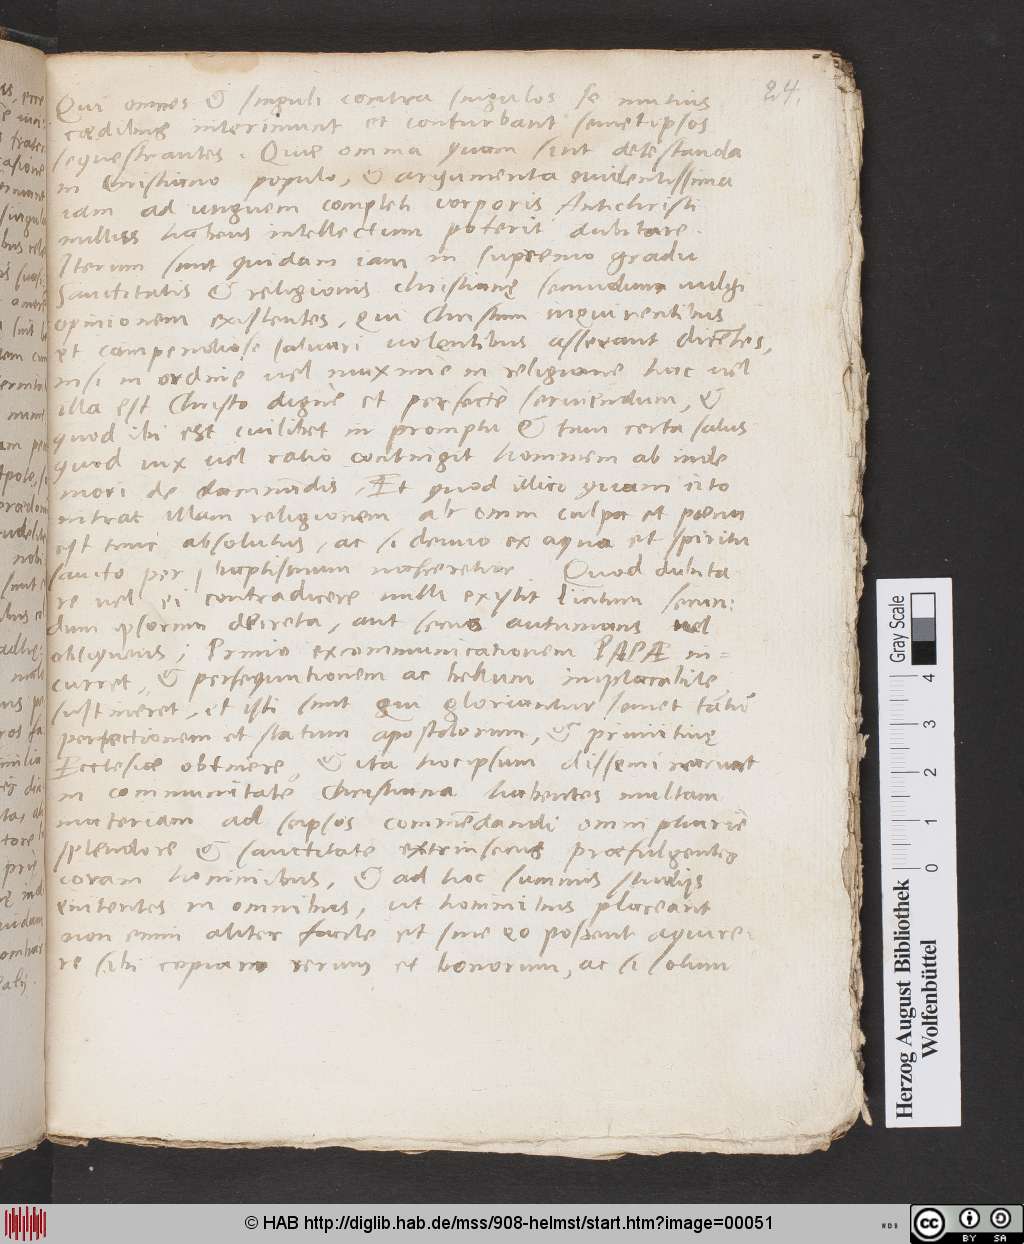 24.
Qui omnes & singuli contra singulos se mutuis
cædibus interimunt et conturbant semetipsos
sequestrantes. Quæ omnia quam sint detestanda
in Christiano populo, & argumenta evidentissima
iam ad unguem completi corporis Antichristi
nulliss habens intellectum poterit dubitare.
Iterum sunt quidam iam in supremo gradu
Sanctitatis & religionis christianę secundum vulgi
opinionem existentes, qui Christum inquirentibus
et compendiose salvari volentibus asserant dicētes,
nisi in ordine vel maxime in religione hac vel
illa est Christo digne et perfecte serviendum, &
quod ibi est cuilibet in promptu & tam certa salus
quod vix vel ratio contingit hominem ab inde
mori de damnandis, Et quod illico quam cito
intrat illam religionem ab omni culpa et pœna
est tunc absolutus, ac si denuo ex aqua et spiritu
sancto per baptismum nasceretur Quod dubita
re vel ei contradicere nulli exystit licitum secun:
dum ipsorum decreta, aut secus autumans vel
obliquens; Primo excommunicationem PAPÆ in=
curret, & persequutionem ac bellum implacabile
sustineret, et isti sunt qui gloriantur semet tantū
perfectionem et statum apostolorum, & primitivę
Ecclesiæ obtinere, & ita hocipsum disseminarunt
in communitate Christiana habentes multam
materiam ad seipsos commēdandi omnipharie
splendore & sanctitate extrinsecus præfulgentes
coram hominibus, & ad hoc summis studijs
enitentes in omnibus, ut hominibus placeant
non enim aliter facile et sine eo possent aquire:
re sibi copiam rerum et bonorum, ac si solum
Gray Scale
0 1 2 3 4
Herzog August Bibliothek
Wolfenbüttel
© HAB http://diglib.hab.de/mss/908-helmst/start.htm?image=00051
WDB
cc BY SA